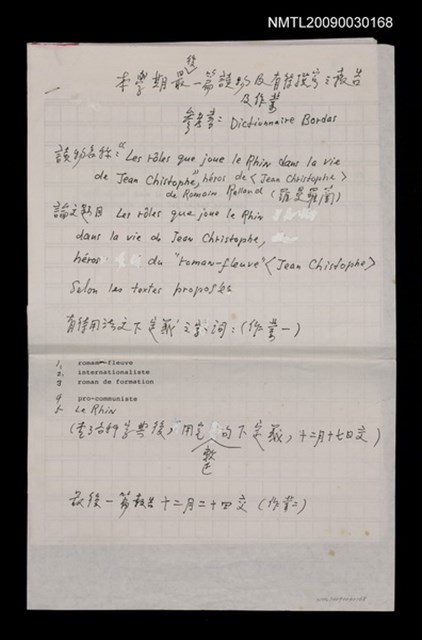 NMTL20090030168
本學期最後一篇讀物及有待撰寫之報告
及作業
參考書: Dictionnaire Bordas
讀物名稱: "Les rôles que joue le Rhin dans la vie
de Jean Chistophe", héros de <Jean Christophe>
de Romain Rolland (羅曼羅蘭)
論文題目 Les rôles que joue le Rhin
dans la vie de Jean Christophe,
héros du "roman-fleuve" <Jean Chistophe>
Selon les textes proposés
有待用法文下定義之字、詞: (作業一)
1. roman-fleuve
2. internationaliste
3 roman de formation
4 pro-communiste
5. Le Rhin
(查百科字典後, 用完整的句下定義, 十二月十七日交)
最後一篇報告十二月二十四交 (作業二)